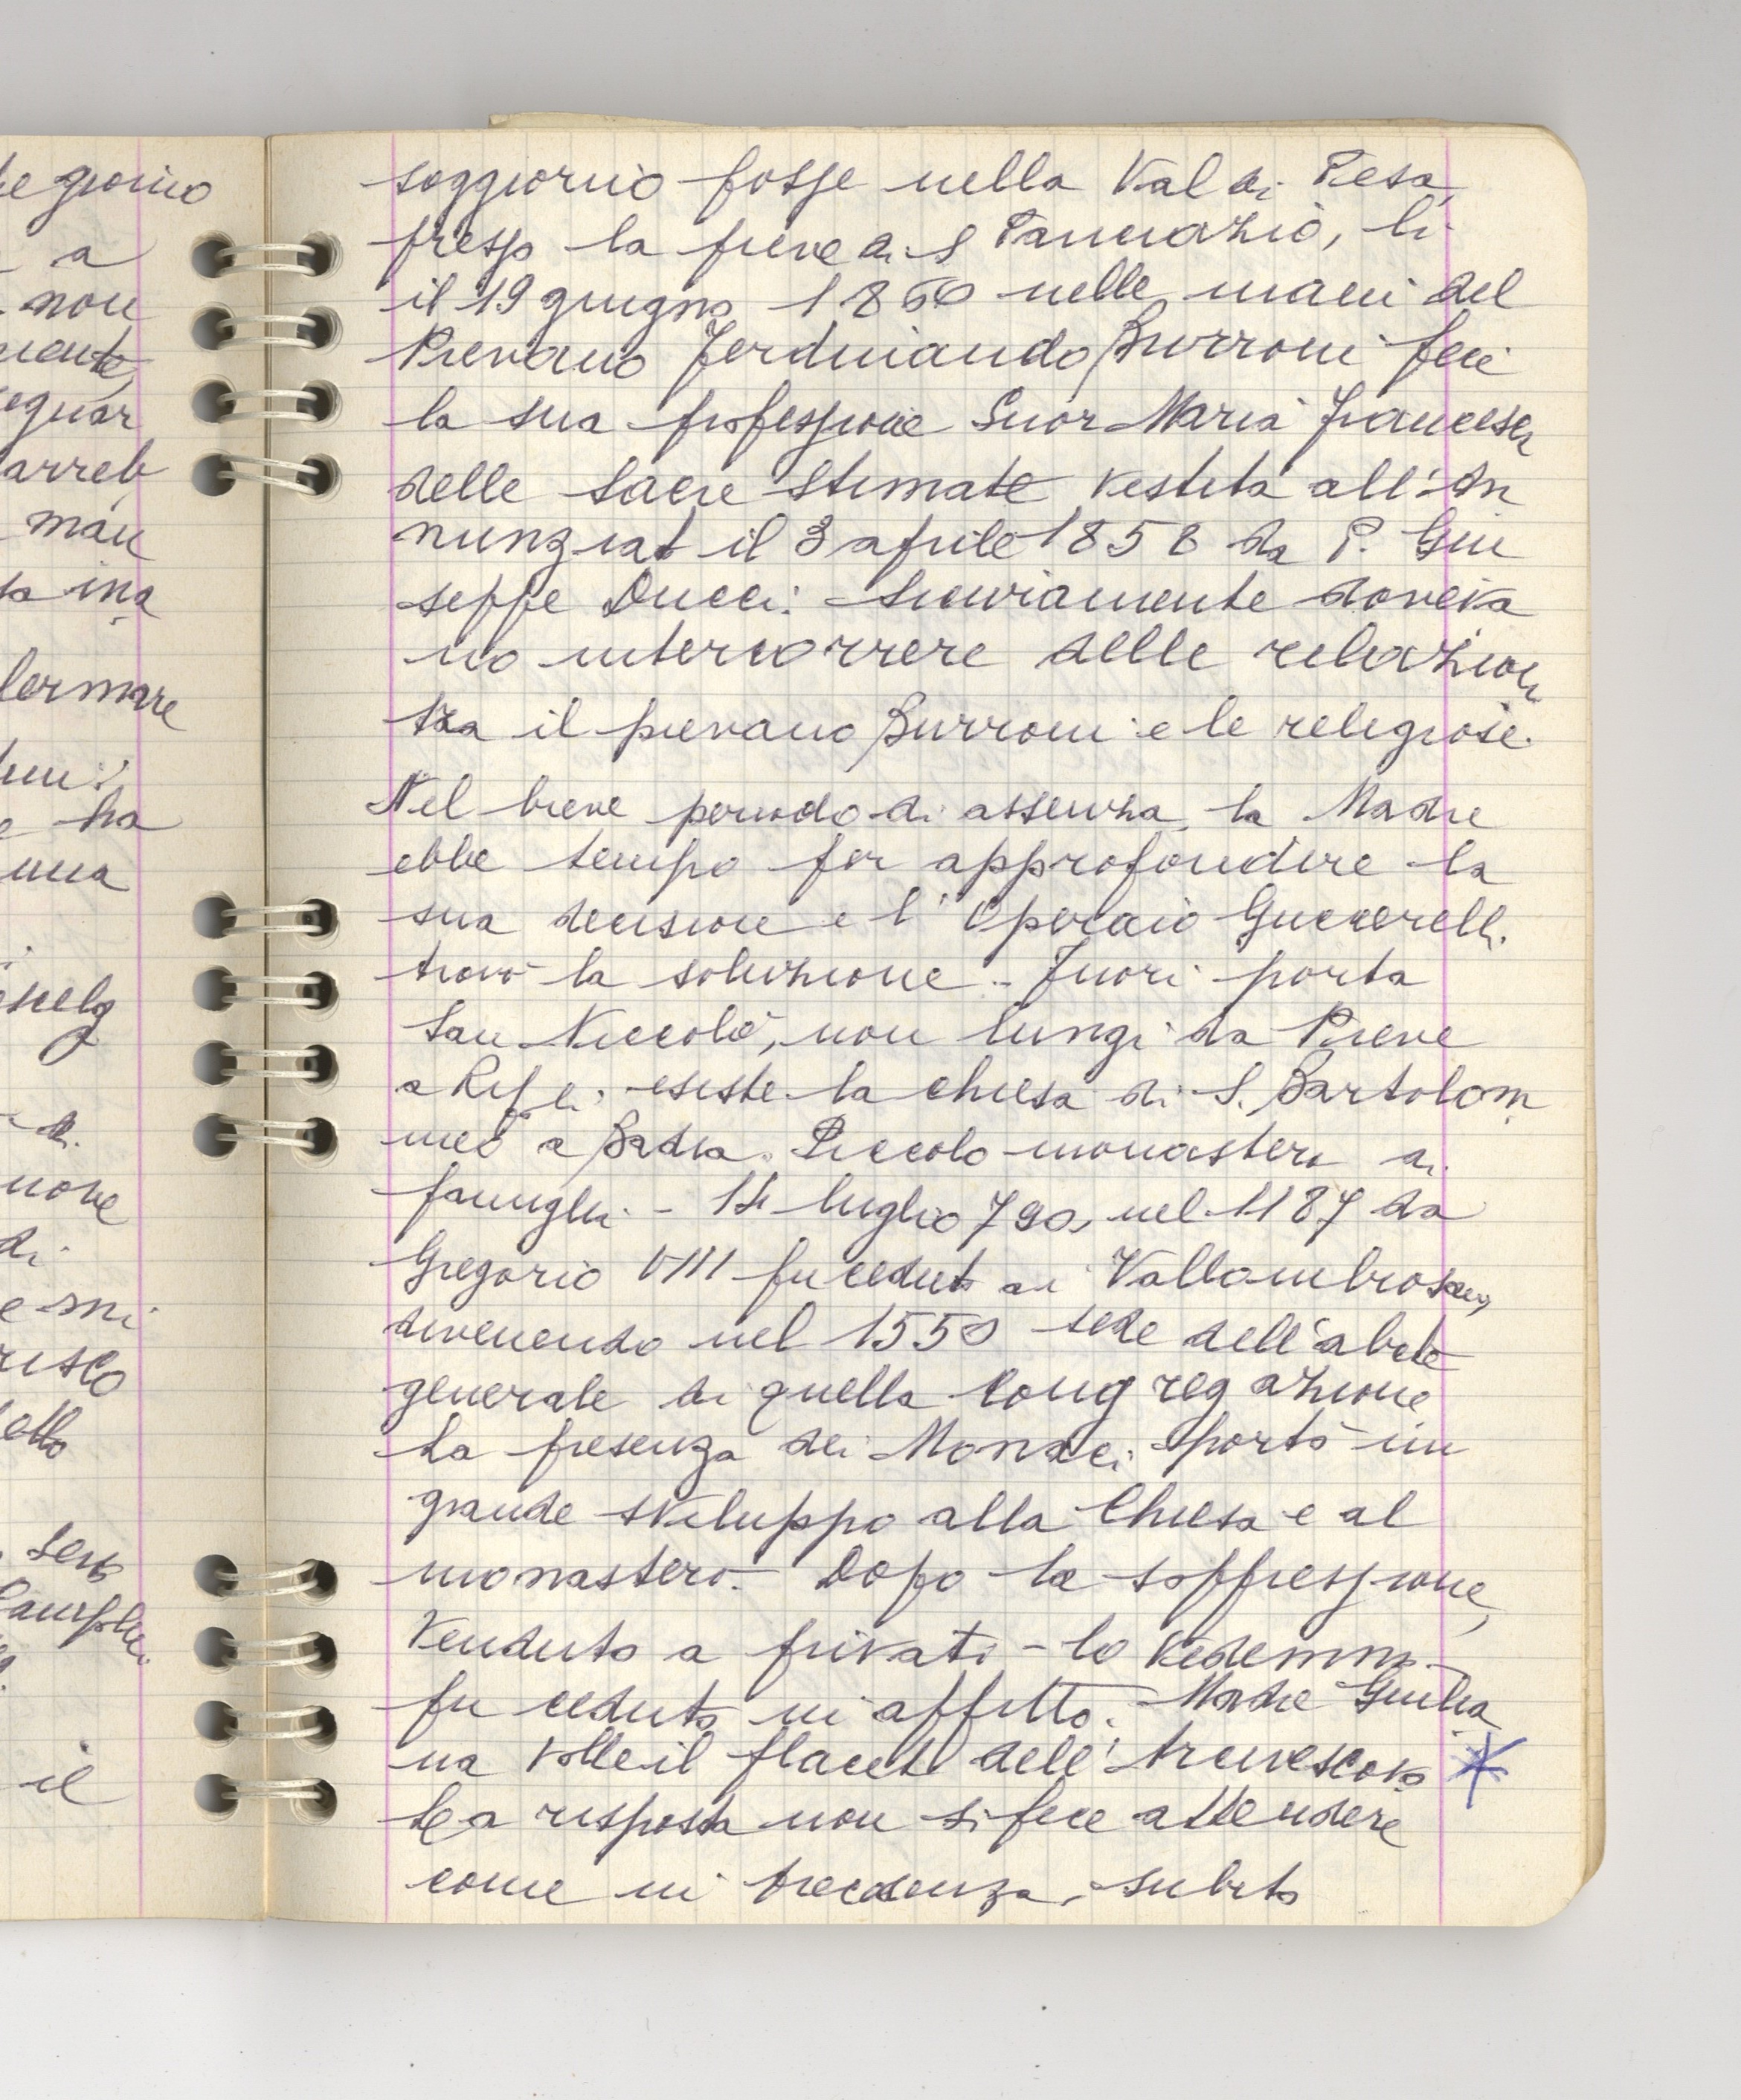 soggiorno fosse nella Val di Pesa,
presso la pieve di S Pancrazio, lì
il 19 giugno 1860 nelle mani del
Pievano Ferdinando Burroni fece
la sua professione Suor Maria Francesca
delle Sacre Stimate vestita all'An
nunziat il 3 aprile 1858 da P. Giu
seppe Ducci: sicuriamente doveva
no intercorrere delle relazioni
tra il pievano Burroni e le religiose.
Nel breve periodo di assenza, la Madre
ebbe tempo per approfondire la
sua decisione e l'Operaio Guccerelli
trovò la soluzione - Fuori porta
San Niccolò, non lungi da Pieve
a Ripoli esiste la chiesa di S. Bartolom
meo a Badia. Piccolo monastero di
famiglia - 14 luglio 790, nel 1187 da
Gregorio VIII fu ceduto ai Vallombrosani,
divenendo nel 1550 sede dell'abate
generale di quella Congregazione
La presenza dei Monaci portò un
grande sviluppo alla Chiesa e al
monastero. Dopo la soppressione,
venduto a privati - lo vedemmo -
fu ceduto in affitto. Madre Giulia
na volle il placet dell'Arcivescovo *
La risposta non si fece attendere
come in precedenza, subito
be giorno
a
non
mente,
eguar
arreb
man
sa ina
fermare
ha
una
di
nove
di
e mi
ello
il